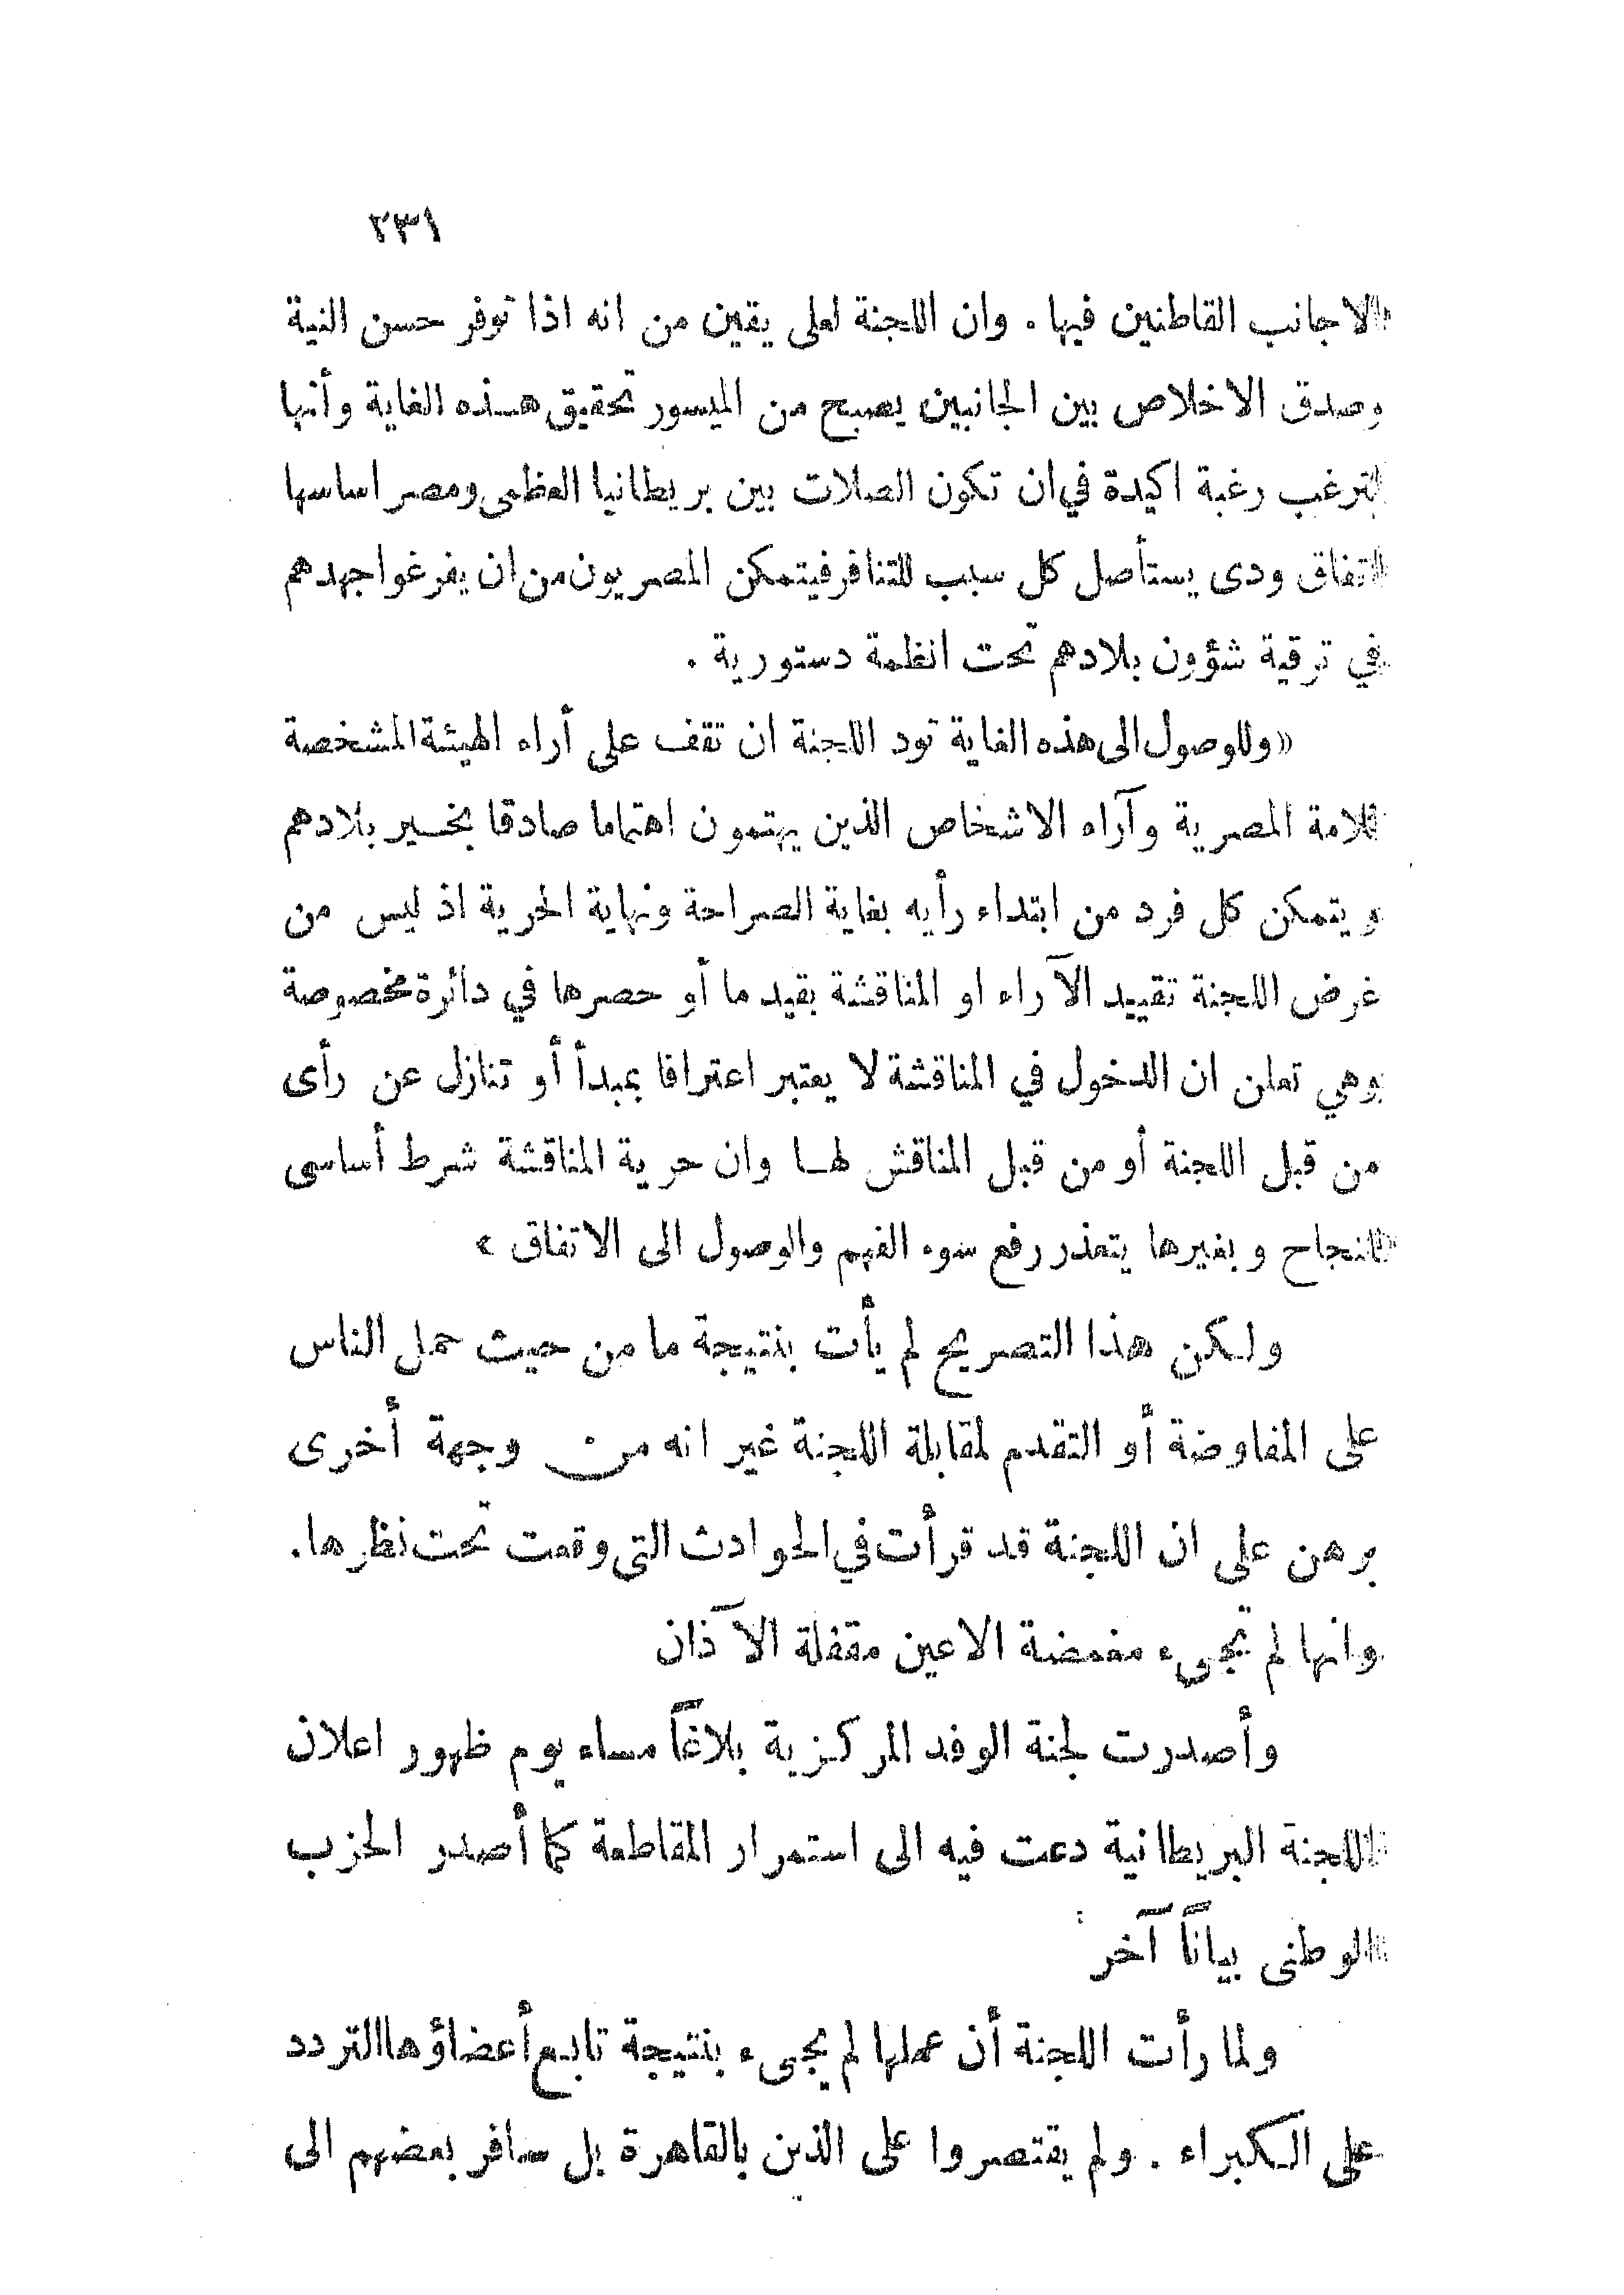 ٢٣١
الاجانب القاطنين فيها . وان اللجنة لعلى يقين من انه اذا توفر حسن النية
وصدق الاخلاص بين الجانبين يصبح من الميسور تحقيق هـذه الغاية وأنها
لترغب رغبة اكيدة في ان تكون الصلات بين بريطانيا العظمى ومصر اساسها
اتفاق ودى يستأصل كل سبب للتنافر فيتمكن المصريون من ان يفرغوا جهدهم
في ترقية شؤون بلادهم تحت انظمة دستورية .
« وللوصول الى هذه الغاية تود اللجنة ان تقف على أراء الهيئة المشخصة
للامة المصرية وآراء الاشخاص الذين يهتمون اهتماما صادقا بخـير بلادهم
ويتمكن كل فرد من ابتداء رأيه بغاية الصراحة ونهاية الحرية اذ ليس من
غرض اللجنة تقييد الآراء او المناقشة بقيد ما أو حصرها في دائرة مخصوصة
وهي تعلن ان الدخول في المناقشة لا يعتبر اعترافا بمبدأ أو تنازل عن رأى
من قبل اللجنة أو من قبل المناقش لهـا وان حرية المناقشة شرط أساسى
للنجاح وبغيرها يتعذر رفع سوء الفهم والوصول الى الاتفاق »
ولكن هذا التصريح لم يأت بنتيجة ما من حيث حمل الناس
على المفاوضة أو التقدم لمقابلة اللجنة غير انه من وجهة أخرى
برهن على ان اللجنة قد قرأت في الحوادث التى وقعت تحت نظرها.
وانها لم تجىء مغمضة الاعين مقفلة الآذان
وأصدرت لجنة الوفد المركزية بلاغاً مساء يوم ظهور اعلان
اللجنة البريطانية دعت فيه الى استمرار المقاطعة كما أصدر الحزب
الوطنى بياناً آخر
ولما رأت اللجنة أن عملها لم يجىء بنتيجة تابع أعضاؤها التردد
على الكبراء . ولم يقتصروا على الذين بالقاهرة بل سافر بعضهم الى